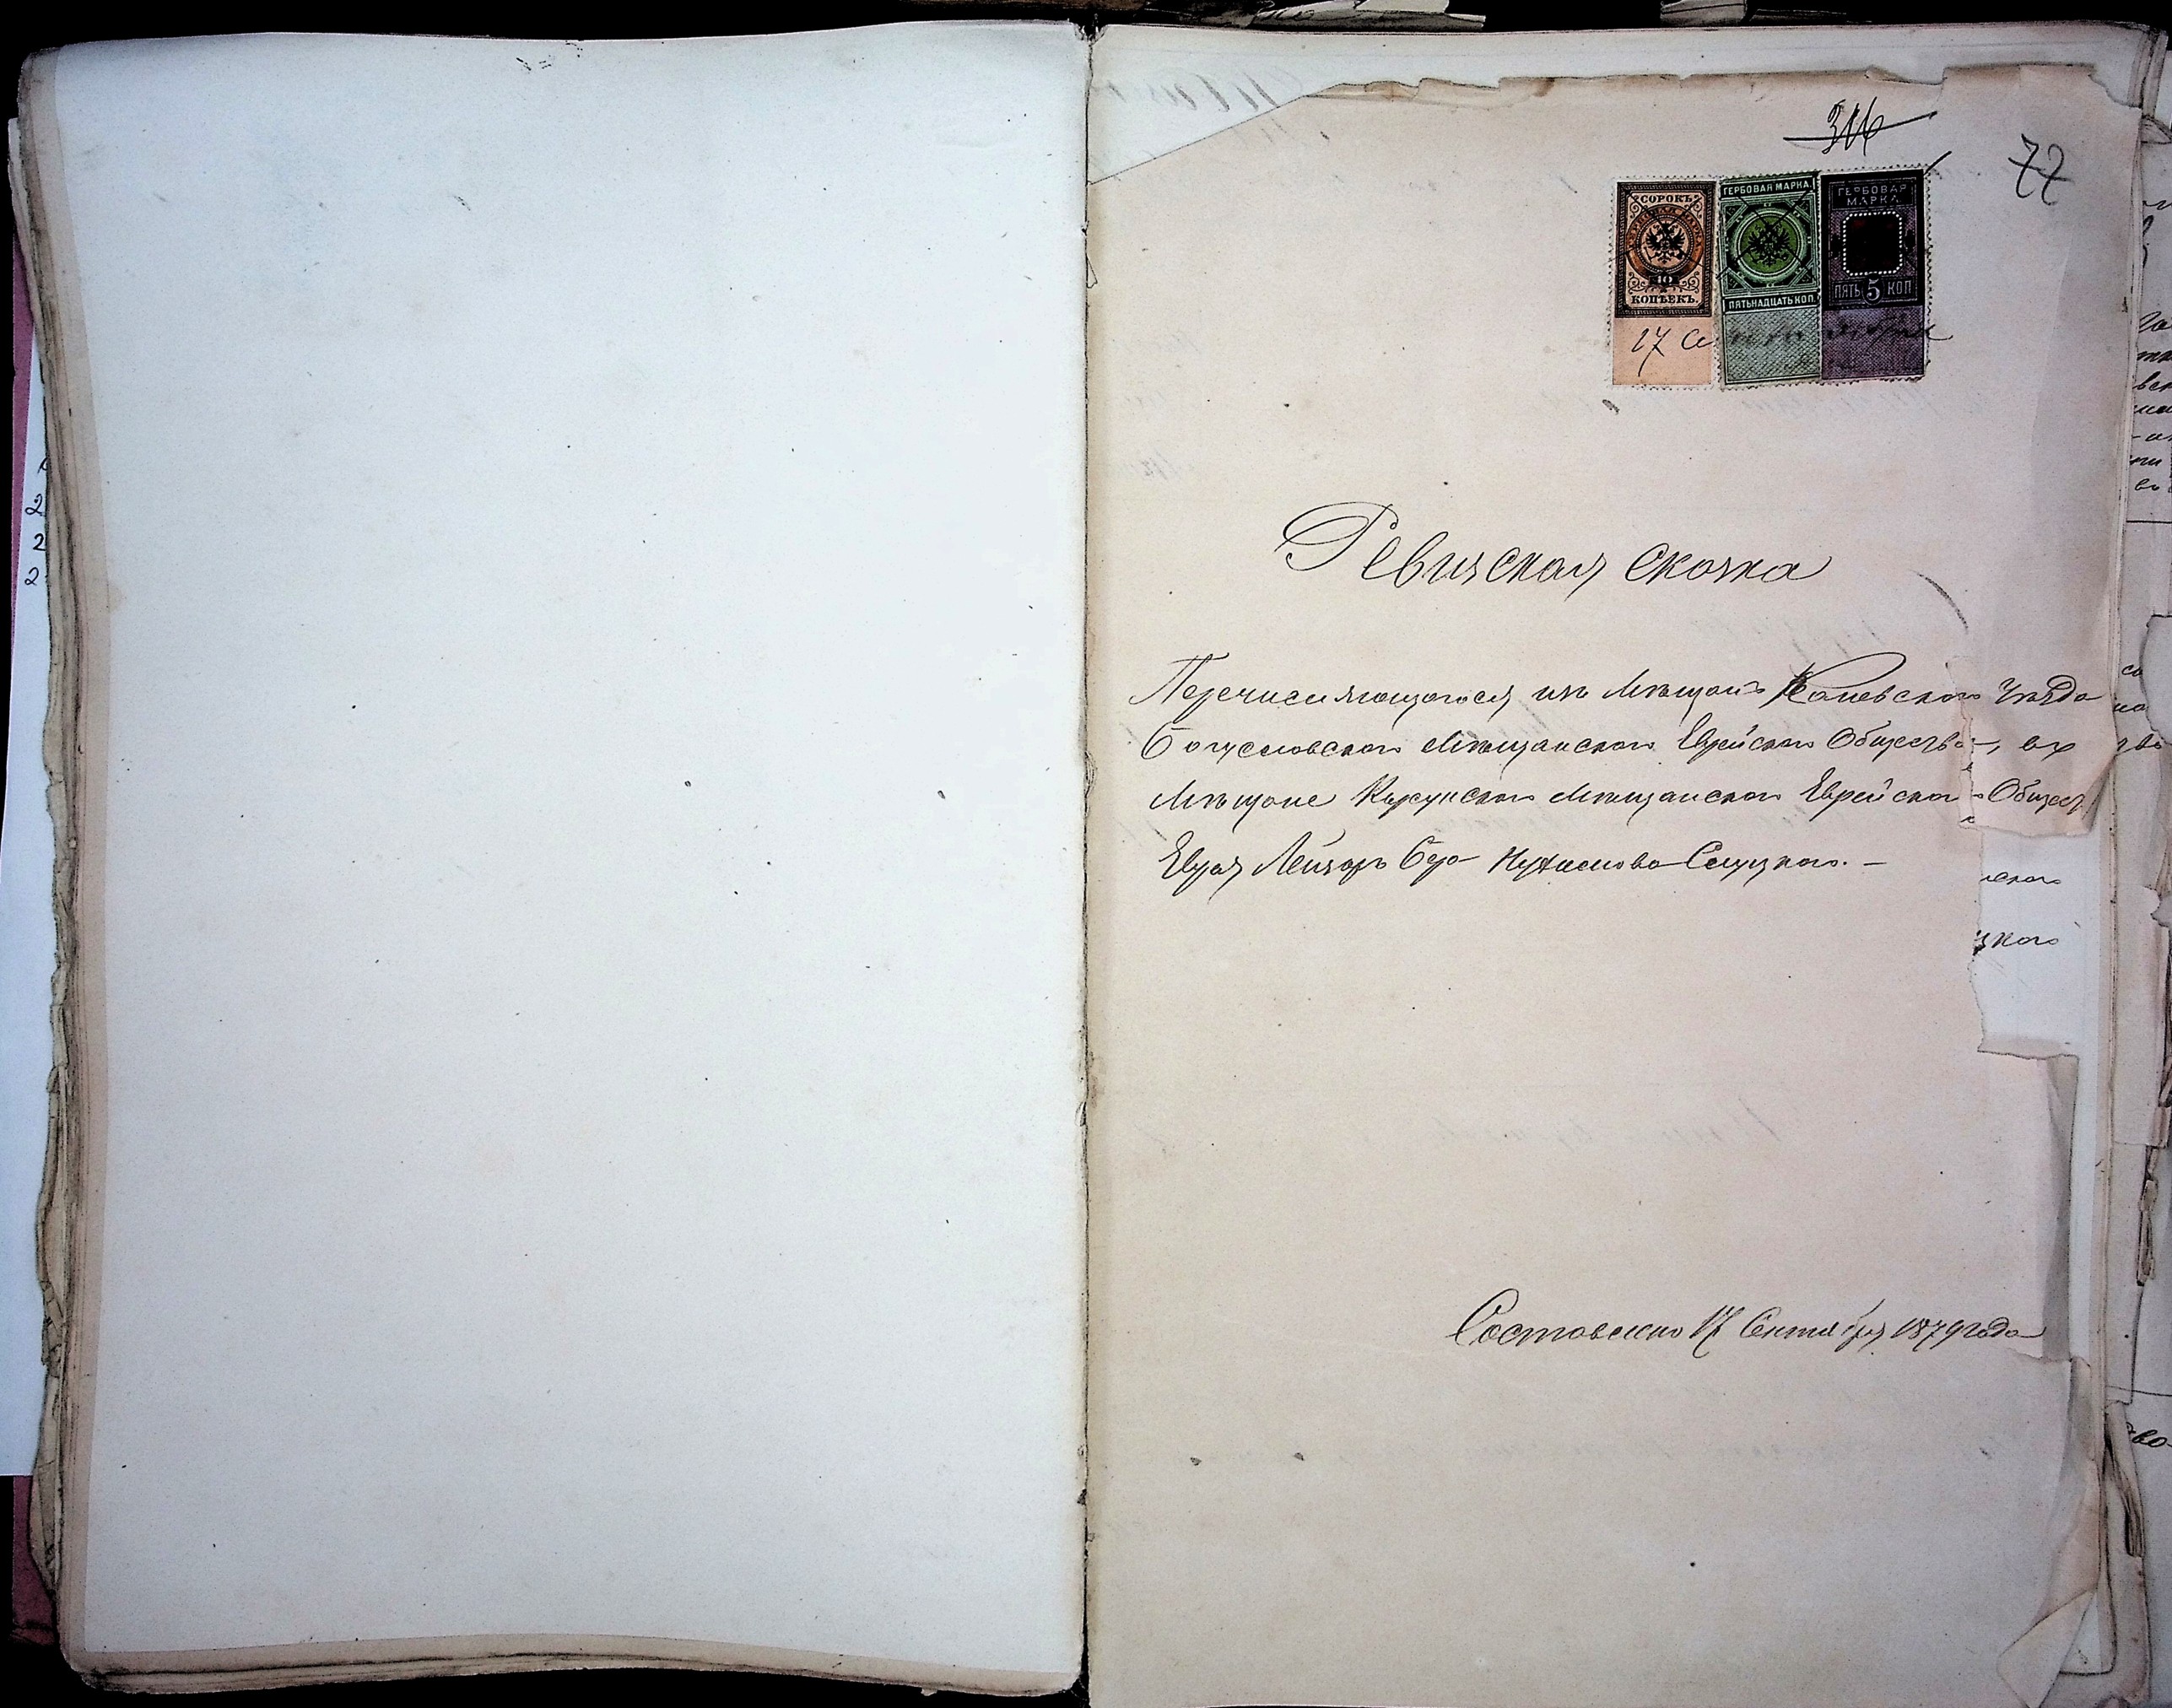 316
77
СОРОКЪ
40
КОПѢЕКЪ.
ГЕРБОВАЯ МАРКА.
ПЯТЬНАДЦАТЬ КОП.
ГЕРБОВАЯ
МАРКА
ПЯТЬ 5 КОП
17 Сентября
Ревизская сказка
Перечисляющагося изъ мѣщанъ Каневского Уѣзда
Богуславского мѣщанского Еврейского Общества, въ
мѣщане Корсунского мѣщанского Еврейского Общест
Еврея Лейзоръ Бера Нухимова Слуцкого. —
ского
цкого
Составлено 17 Сентября 1879 года